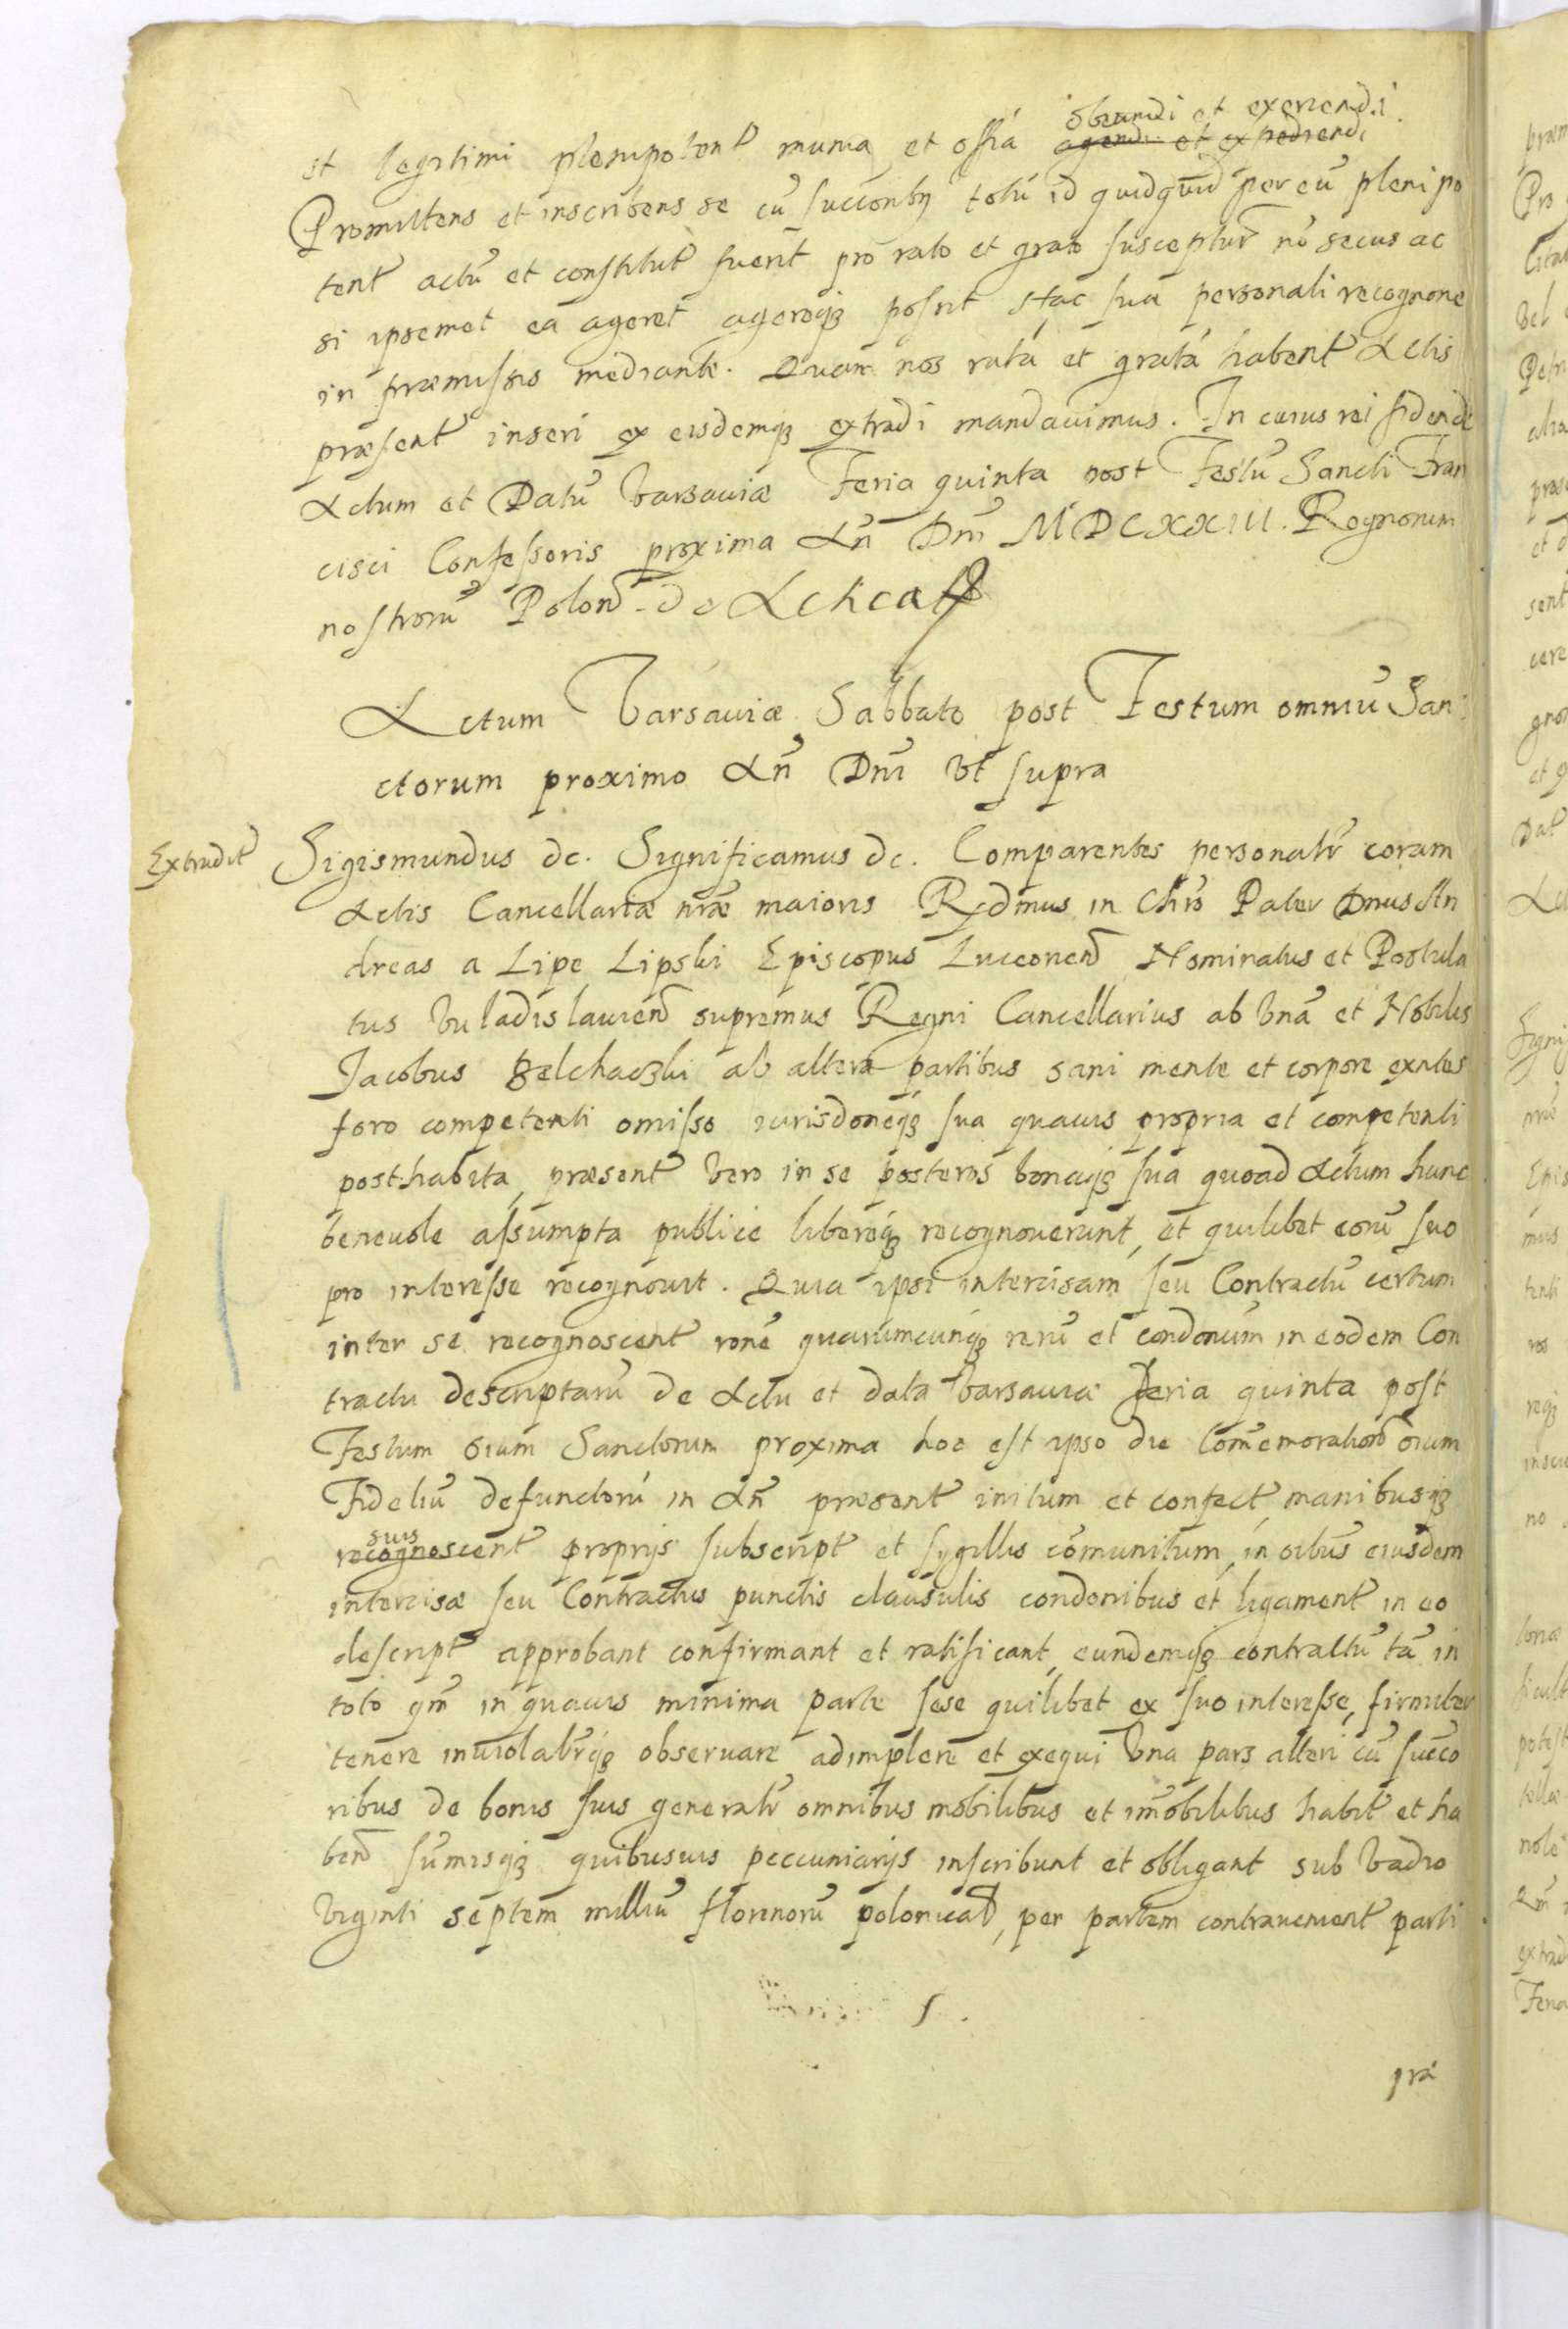 obeundi et exercendi.
et legitimi plenipotent munia et offia agendi et expediendi
Promittens et inscribens se cũ succonbȝ totũ id quidquid per eũ plenipo
tent actũ et constitut fuerit pro rato et grato suscepturũ nõ secus ac
si ipsemet ea ageret agereqȝ possit Hac sua personali recognone
in præmissis mediante. Quam nos ratã et gratã habent Actis
præsent inseri ex eisdemqȝ extradi mandavimus. In cuius rei fidem &c
Actum et Datũ Varsaviæ Feria quinta post Festũ Sancti Fran
cisci Confessoris proxima An̄ Dn̄i MDCXXIII. Regnorum
nostrorũ Polon̄ &c
Actum Varsaviæ Sabbato post Festum omniũ San:
ctorum proximo An̄ Dn̄i vt supra
Extradit
Sigismundus &c. Significamus &c. Comparentes personalr̃ coram
Actis Cancellariæ nr̃æ maioris Rx̃dmus in Chr̃o Pater Dnus An
dreas a Lipe Lipski Episcopus Luceoren̄ Nominatus et Postula
tus Vuladislavien̄ supremus Regni Cancellarius ab vnã et Nobilis
Jacobus Belchaczki ab altera partibus sani mente et corpore exñtes
foro competenti omisso iurisdoneqȝ sua quavis propria et competenti
posthabita, præsent vero in se posteros bonaqȝ sua quoad Actum hunc
benevole assumpta publice libereqȝ recognoverunt, et quilibet eorũ suo
pro interesse recognovit. Quia ipsi intercisam seu Contractũ certum
inter se recognoscent rõne quarumcunqȝ rerũ et condonũm in eodem Con
tractu descriptarũ de Actu et data Varsaviæ Feria quinta post
Festum oium Sanctorum proxima hoc est ipso die Com̃emoration̄ oium
Fideliũ defunctorũ in An̄ præsent initum et confect, manibusqȝ
suis
recognoscent proprijs subscript et sygillis com̃unitum, in oibus eiusdem
intercisæ seu Contractus punctis clausulis condonibus et ligament in eo
descript approbant confirmant et ratificant, eundemqȝ contractũ tã in
toto qm̃ in quavis minima parte sese quilibet ex suo interesse, firmiter
tenere inviolabr̃qȝ observare adimplere et exequi vna pars alteri cũ succo
ribus de bonis suis generalr̃ omnibus mobilibus et im̃obilibus habit et ha
ben̄ sum̃isqȝ quibusuis peccuniarijs inscribunt et obligant sub vadio
viginti septem milliũ florenorũ polonical, per partem contravenient parti
præ